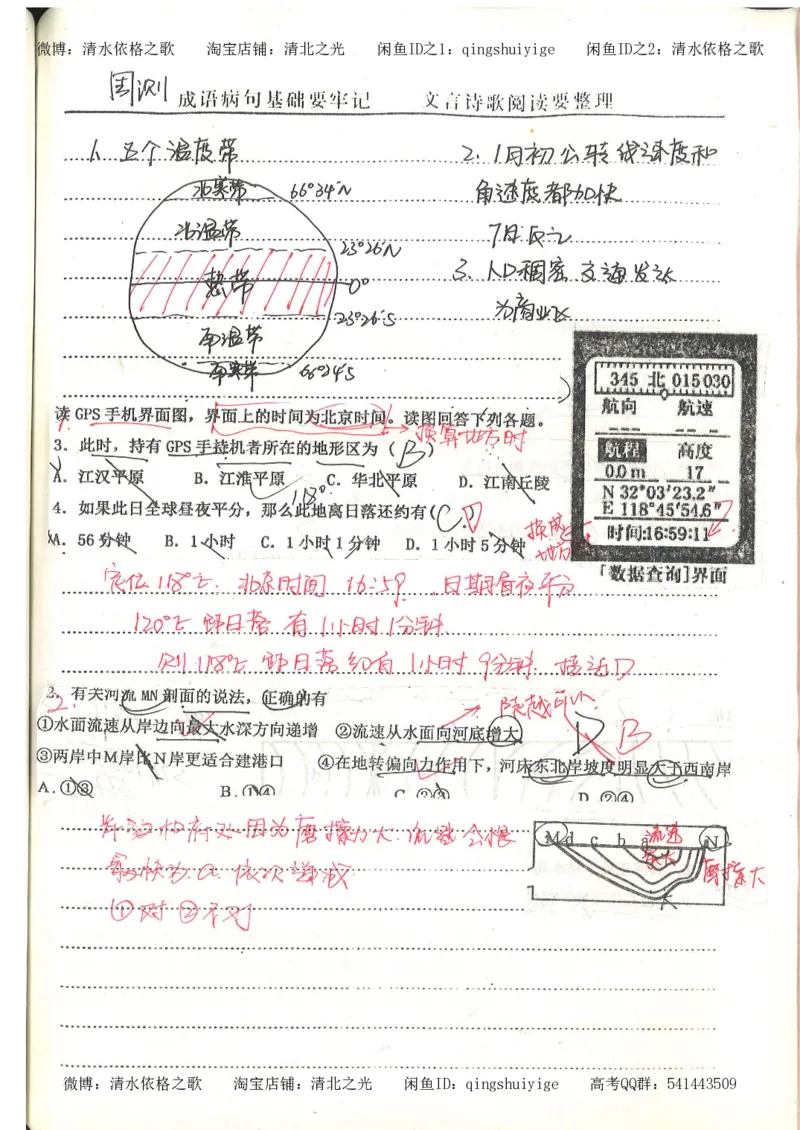 微博：清水依格之歌 淘宝店铺：清北之光 闲鱼ID之1：qingshuiyige 闲鱼ID之2：清水依格之歌
周测 成语病句基础要牢记 文言诗歌阅读要整理
1、五个温度带
北寒带 66°34′N
北温带
23°26′N
热带 0°
23°26′S
南温带
南寒带 66°34′S
2、1月初公转线速度和
角速度都加快
7月反之
3、人口稠密 交通发达
为商业区
读 GPS 手机界面图，界面上的时间为北京时间。读图回答下列各题。
换算地方时
3．此时，持有 GPS 手持机者所在的地形区为（B）
A．江汉平原 B．江淮平原 C．华北平原 D．江南丘陵
118°
4．如果此日全球昼夜平分，那么此地离日落还约有(C)D
A．56 分钟 B．1 小时 C．1 小时 1 分钟 D．1 小时 5 分钟
345 北 015 030
航向 航速
航程 高度
0.0 m 17
N 32°03′23.2″
E 118°45′54.6″
时间:16:59:11
「数据查询]界面
定位 118°E 北京时间 16:59 日期昼夜平分
120°E 即日落 有 1小时1分钟
则 118°E 即日落约有 1小时9分钟 接近D
2．有关河流 MN 剖面的说法，正确的有
①水面流速从岸边向最大水深方向递增 ②流速从水面向河底增大
D B
③两岸中M岸比N岸更适合建港口 ④在地转偏向力作用下，河床东北岸坡度明显大于西南岸
A．①③ B．①④ C．②③ D．②④
M d c b a N
流速
最大
摩擦大
①对 ②不对
微博：清水依格之歌 淘宝店铺：清北之光 闲鱼ID：qingshuiyige 高考QQ群：541443509